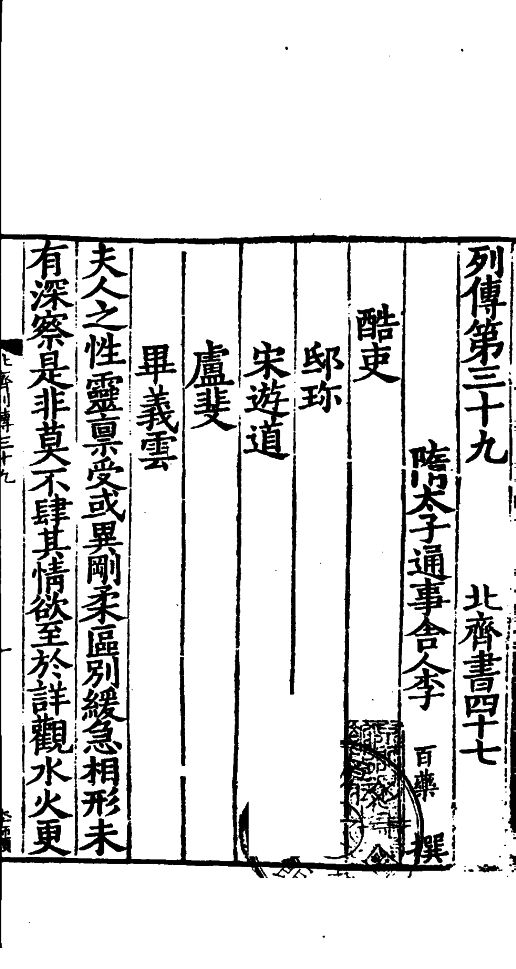 列傳第三十九　北齊書四十七
隋太子通事舎人李　百藥　撰
酷吏
邸珎
宋遊道
盧斐
畢義雲
夫人之性靈禀受或異剛柔區别緩急相形未
有深察是非莫不肆其情欲至於詳觀水火更
北齊列傳三十九
一